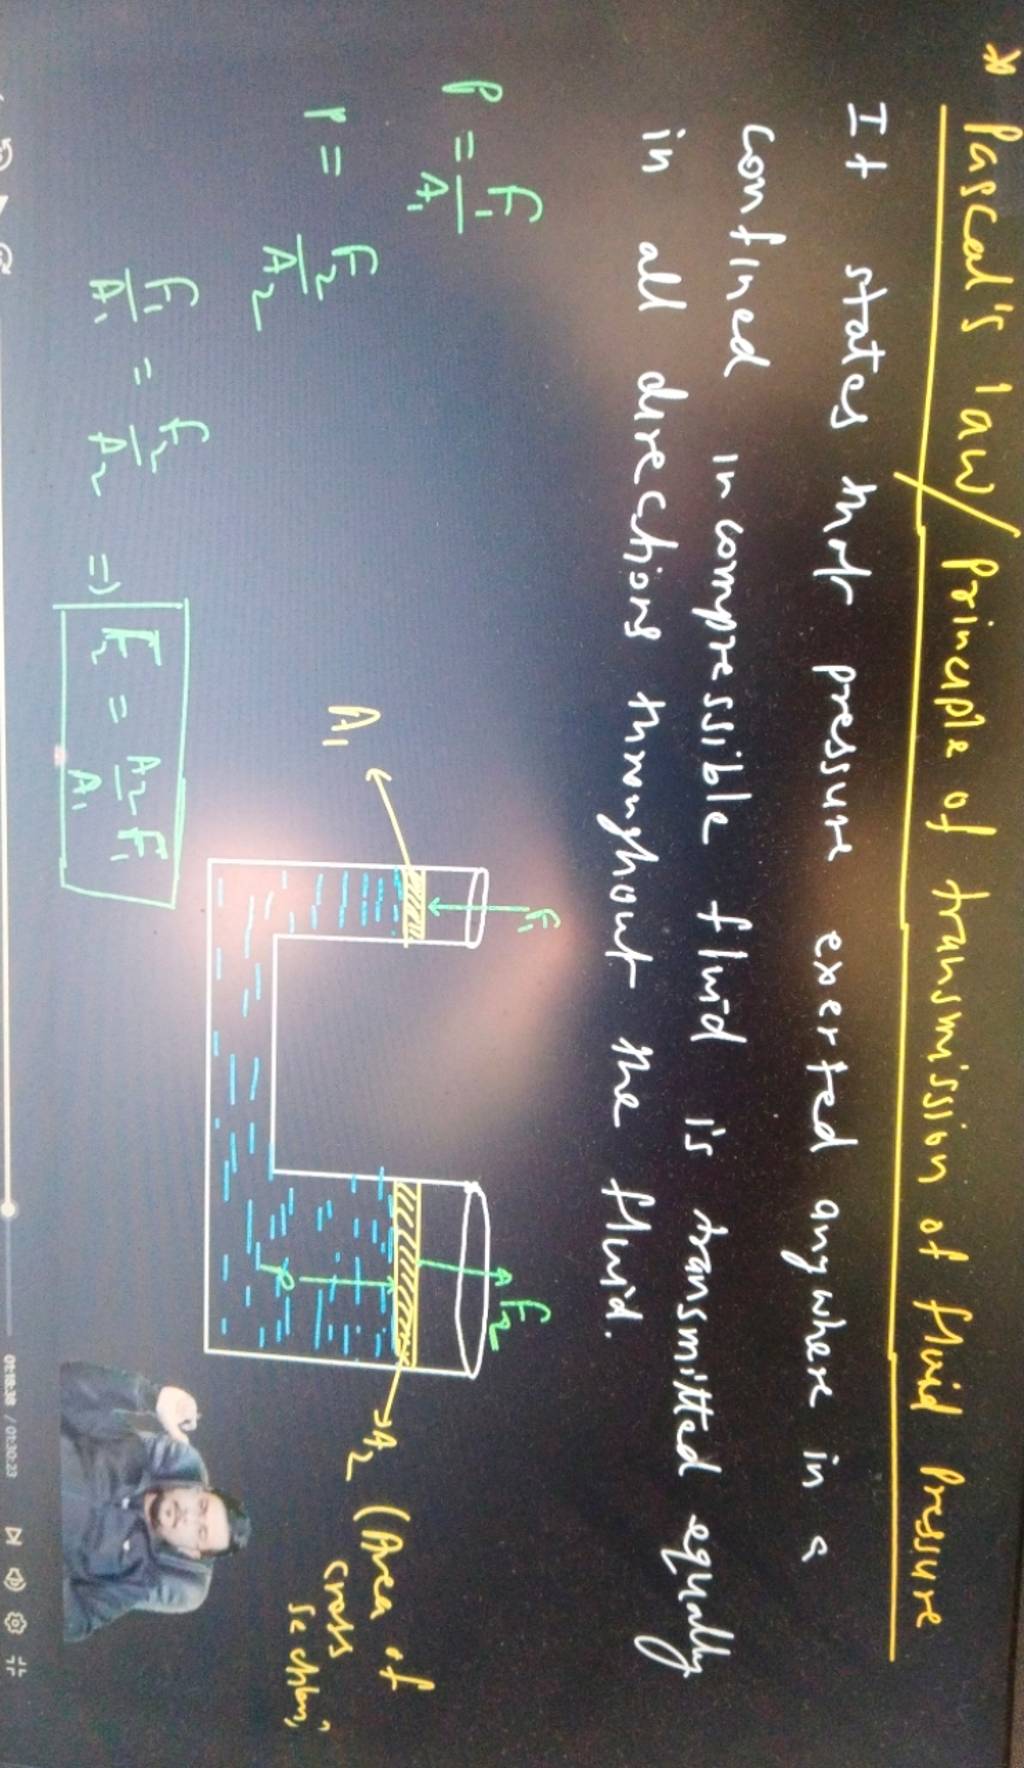 * Pascal's law/Principle of transmission of fluid Pressure
It states that pressure exerted anywhere in a
confined incompressible fluid is transmitted equally
in all directions throughout the fluid.
P = F₁/A₁
P = F₂/A₂
F₁/A₁ = F₂/A₂ ⇒ F₂ = A₂/A₁ F₁
F₁
F₂
A₁
P
A₂ (Area of
cross
section)
01:18:38 / 01:30:23